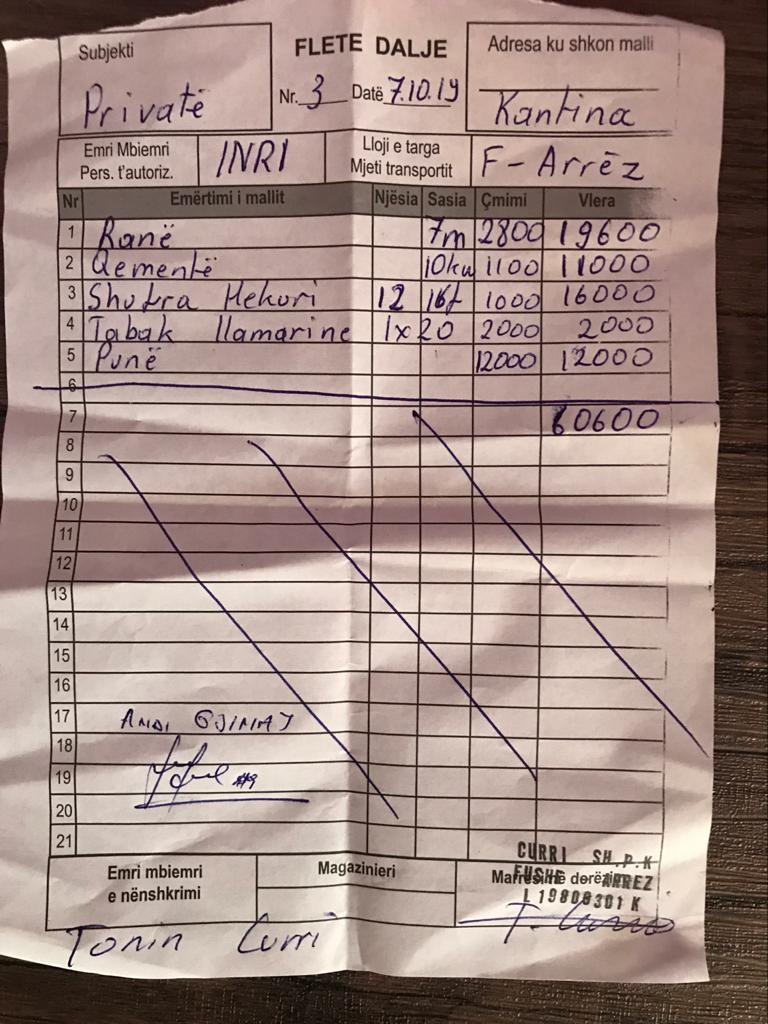 Subjekti
FLETE DALJE
Adresa ku shkon malli
Privatë
Nr. 3 Datë 7.10.19
Kantina
Emri Mbiemri
Pers. t'autoriz.
INRI
Lloji e targa
Mjeti transportit
F-Arrëz
Nr Emërtimi i mallit Njësia Sasia Çmimi Vlera
1 Ranë 7m 2800 19600
2 Qementë 10ku 1100 11000
3 Shufra Hekuri 12 16f 1000 16000
4 Tabak llamarine 1x20 2000 2000
5 Punë 12000 12000
6
7 60600
8
9
10
11
12
13
14
15
16
17 ANDI GJINAJ
18
19
20
21
Emri mbiemri
e nënshkrimi
Magazinieri
CURRI SH.P.K
FUSHE ARREZ
L19809301K
Tonin Curri